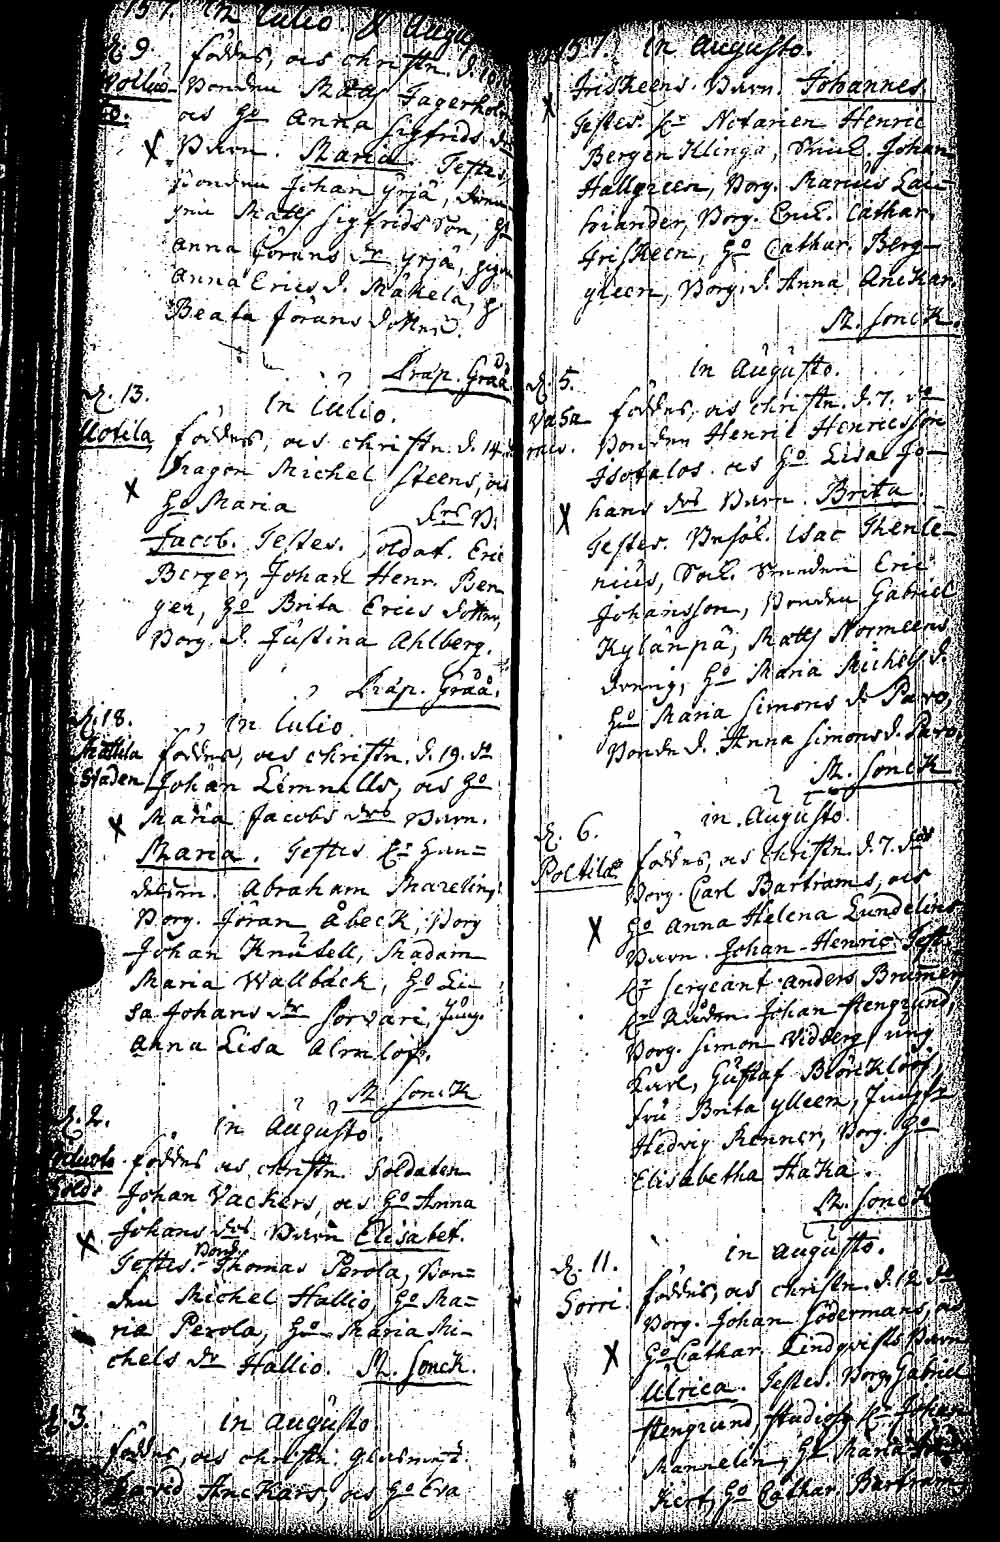 157. In Julio & Augusto
d. 9. föddes, ocs christn. d. 10
Bonden Matts Jagerhol
to. ocs ho Anna Sigfrids dr
Barn. Maria. Testes,
Bonden Johan Yrjä,
Matts Sigfridsson, ho
Anna Jörans dr Yrjä,
Anna Erics d. Mäkelä,
Beata Jörans dotter.
Präp. Gråå
d. 13. In Julio.
Ulovila föddes, ocs christn. d. 14.
Dragon Michel Steens, ocs
ho Maria drs B.
Jacob. Testes. Soldat. Eric
Berger, Johan Henr. Ber
ger, ho Brita Erics dotter,
Borg. d. Justina Ahlberg.
Präp. Gråå.
d. 18. In Julio
Mattila föddes, ocs christn. d. 19. do
Staden Johan Limnells, ocs ho
Maria Jacobs drs Barn.
Maria. Testes Hr Han=
delsm. Abraham Mazelin,
Borg. Jöran Åbeck, Borg
Johan Knutell, Madam
Maria Wallbäck, ho Li
sa Johans dr Sorvari, Jung.
Anna Lisa Almlöf.
M. Sonck
d. 2. in Augusto.
föddes ocs christn. Soldaten
Johan Vackers, ocs ho Anna
Johans drs Barn Elisabet.
Testes. Bond. Thomas Perola, Bon=
den Michel Hallio, ho Ma=
ria Perola, ho Maria Mi-
chels dr Hallio. M. Sonck.
d. 3. in Augusto
föddes, ocs christn.
David Anckars, ocs ho Eva
157. in Augusto.
Friskeens. Barn. Johannes.
Testes. Hr Notarien Henric
Bergenklinga, Johan
Hallgreen, Borg. Marius Lau
hiander, Borg. Enk. Cathar.
Friskeen, ho Cathar. Berg-
green, Borg. d. Anna Anckar.
M. Sonck.
d. 5. in Augusto.
föddes, ocs christn. d. 7. do
Bonden Henric Henricsson
Isotalos. ocs ho Lisa Jo-
hans drs Barn. Brita.
Testes. Isac Thenle-
nius, Eric
Johansson, Bonden Gabriel
Kylänpä, Matts Normeens
dreng, ho Maria Michels d.
ho Maria Simons d. Pavo,
Bonde d. Anna Simons d. Pavo.
M. Sonck
d. 6. in Augusto.
Poltila föddes, ocs christn. d. 7. do
Borg. Carl Bartrams, ocs
ho Anna Helena Lundelins
Barn. Johan-Henric. Test.
Hr Sergeant Anders Brumer,
Hr Johan Stengrund,
Borg. Simon Vidberg, ung
Karl, Gustaf Björcklöf,
fru Brita Ylleen, Jungfr
Hedvig Renner, Borg. ho
Elisabetha Haka.
M. Sonck
d. 11. in Augusto.
Sorri föddes, ocs christn. d. 12. do
Borg. Johan Södermans, ocs
ho Cathar. Lindqvists Barn
Ulrica. Testes. Borg. Gabriel
Stengrund, Studios. Hr Johan
Mannelin, ho Maria
Kert, ho Cathar. Bartram